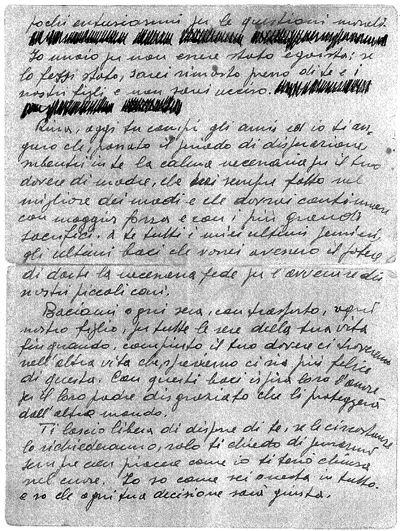 pochi entusiasmi per le questioni morali.
Io muoio per non essere stato egoista; se
lo fossi stato, sarei rimasto presso di te e i
nostri figli e non sarei ucciso.
oggi tu compi gli anni ed io ti au-
guro che, passato il periodo di disperazione
subentri in te la calma necessaria per il tuo
dovere di madre, che hai sempre fatto nel
migliore dei modi e che dovrai continuare
con maggior forza e con i più grandi
sacrifici. A te tutti i miei ultimi pensieri
gli ultimi baci che vorrei avessero il potere
di darti la necessaria fede per l'avvenire dei
nostri piccoli cari.
Baciami ogni sera, con trasporto, ogni
nostro figlio, per tutte le sere della tua vita
fin quando, compiuto il tuo dovere ci troveremo
nell'altra vita che, speriamo ci sia più felice
di questa. Con questi baci ispira loro l'amore
per il loro padre disgraziato che li proteggerà
dall'altro mondo.
Ti lascio libera di disporre di te, se le circostanze
lo richiederanno, solo ti chiedo di pensarmi
sempre con piacere come io ti tenni chiusa
nel cuore. Io so come sei onesta in tutto
e so che ogni tua decisione sarà giusta.